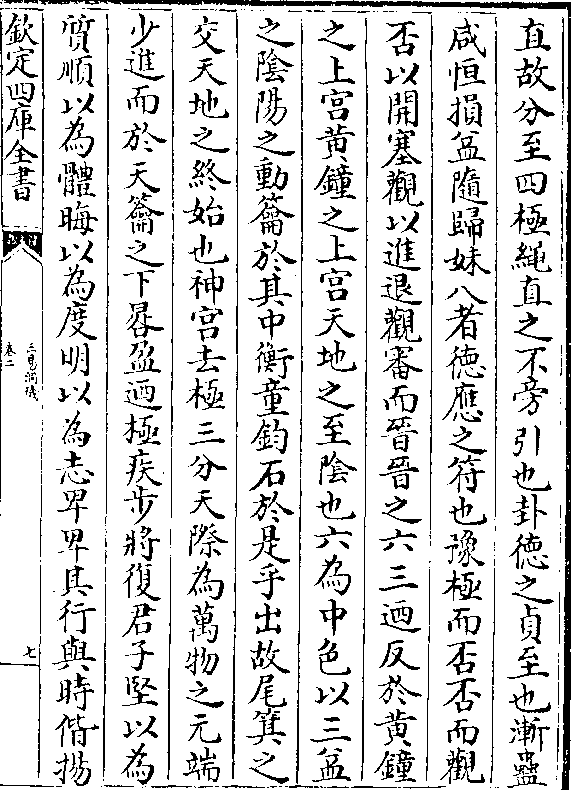 直故分至四極繩直之不旁引也卦德之貞至也漸蠱
咸恒損益隨歸妹八者德應之符也豫極而否否而觀
否以開塞觀以進退觀審而晉晉之六三迺反於黃鐘
之上宫黃鐘之上宫天地之至陰也六為中色以三益
之陰陽之動籥於其中衡童鈞石於是乎出故尾箕之
交天地之終始也神宫去極三分天際為萬物之元端
少進而於天籥之下晷盈迺極疾步將復君子堅以為
質順以為體晦以為度明以為志卑卑其行與時偕揚
欽定四庫全書
三易洞璣
卷二
七